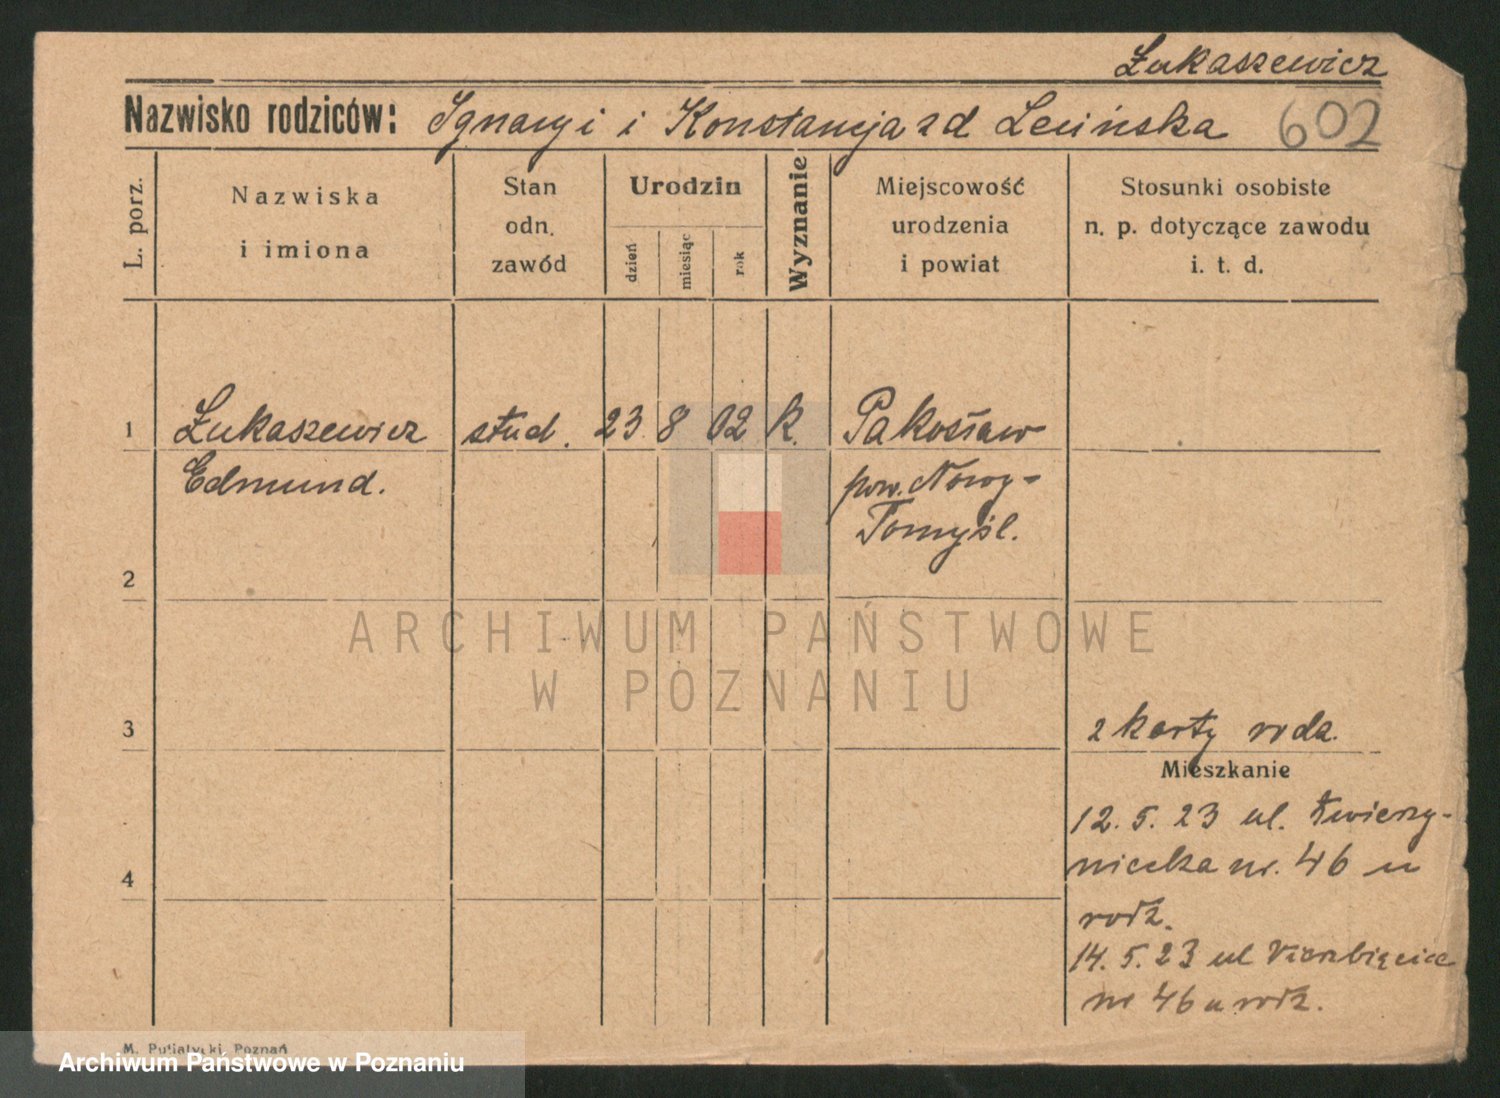 Łukaszewicz
Nazwisko rodziców: Ignacy i Konstancja zd Lecińska 602
L. porz.
Nazwiska
i imiona
Stan
odn.
zawód
Urodzin
dzień
miesiąc
rok
Wyznanie
Miejscowość
urodzenia
i powiat
Stosunki osobiste
n. p. dotyczące zawodu
i. t. d.
1 Łukaszewicz stud. 23 8 02 k. Pakosław
Edmund. pow. Nowy-
Tomyśl.
2
ARCHIWUM PAŃSTWOWE
W POZNANIU
3 2 karty rodz.
Mieszkanie
12. 5. 23 ul. Zwierzy-
niecka nr. 46 u
4
rodz.
14. 5. 23 ul Wierzbięcice
nr 46 u rodz.
M. Putiatycki, Poznań
Archiwum Państwowe w Poznaniu